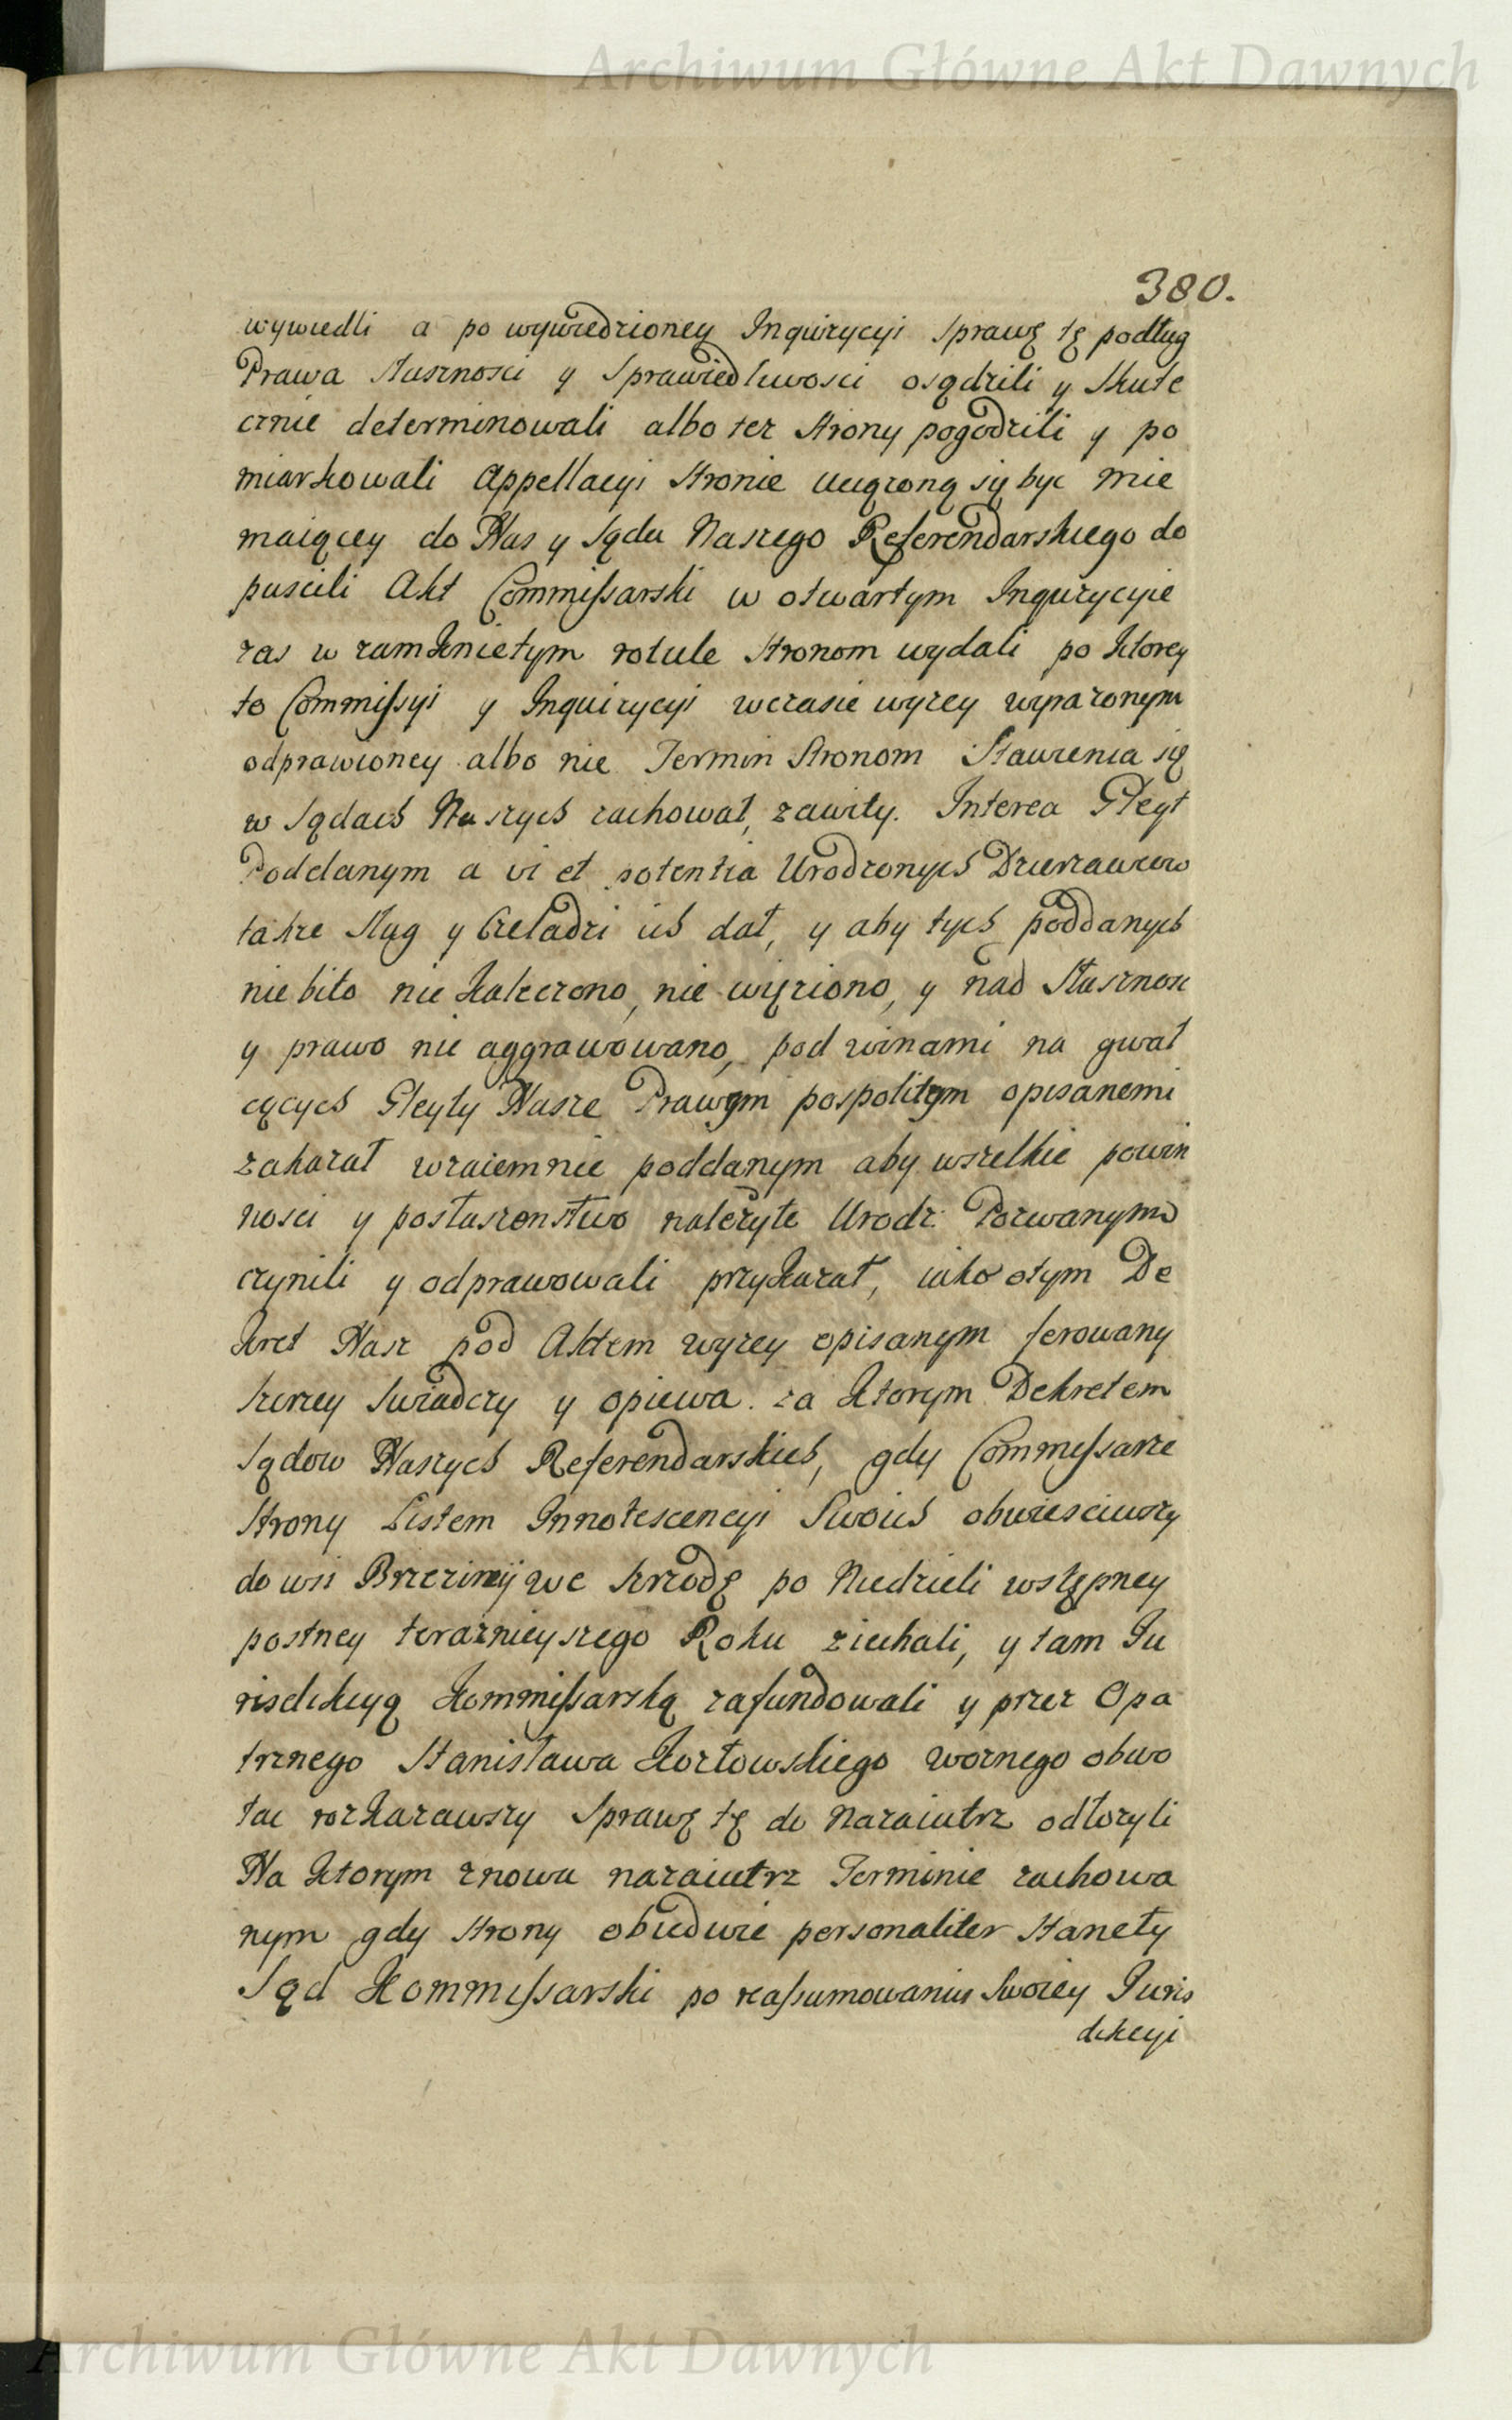 Archiwum Główne Akt Dawnych
380.
wywiedli a po wywiedzioney Inquizycyi sprawę tę podług
Prawa słusznosci y sprawiedliwosci osądzili y skute
cznie determinowali albo tez strony pogodzili y po
miarkowali Appellacyi stronie uciązoną się byc mie
maiącey do Nas y sądu Naszego Referendarskiego do
puscili Akt Commissarski w otwartym Inquizycyie
zas w zamknietym rotule stronom wydali po ktorey
to Commissyi y Inquizycyi w czasie wyzey wyrazonym
odprawioney albo nie Termin stronom stawienia się
w sądach Naszych zachował, zawity. Interea Gleyt
Poddanym a vi et potentia Urodzonych Dzierzawcow
takze sług y Czeladzi ich dał, y aby tych poddanych
nie bito nie kaleczono, nie więziono, y nad słusznosc
y prawo nie aggrawowano, pod winami na gwał
cących Gleyty Nasze Prawem pospolitym opisanemi
zakazał wzaiemnie poddanym aby wszelkie powin
nosci y posłuszenstwo nalezyte Urodz: Pozwanym
czynili y odprawowali przykazał, iako o tym De
kret Nasz pod Aktem wyzey opisanym ferowany
szerzey swiadczy y opiewa. za ktorym Dekretem
sądow Naszych Referendarskich, gdy Commissarze
strony Listem Innotescencyi swoich obwiesciwszy
do wsi Brzeziny we srzodę po Niedzieli wstępney
postney teraznieyszego Roku ziechali, y tam Iu
risdikcyą kommissarską zafundowali y przez Opa
trznego Stanisława Kozłowskiego woznego obwo
łac rozkazawszy sprawę tę do Nazaiutrz odłozyli
Na ktorym znowu nazaiutrz Terminie zachowa
nym gdy strony obiedwie personaliter stanęły
sąd Kommissarski po reassumowaniu swoiey Iuris
dikcyi
Archiwum Główne Akt Dawnych